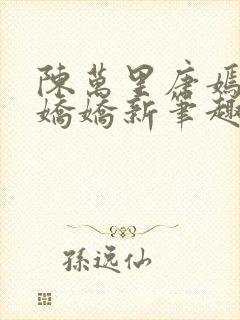 陳萬里唐嫣
嬌嬌新筆趣
孫遠仙